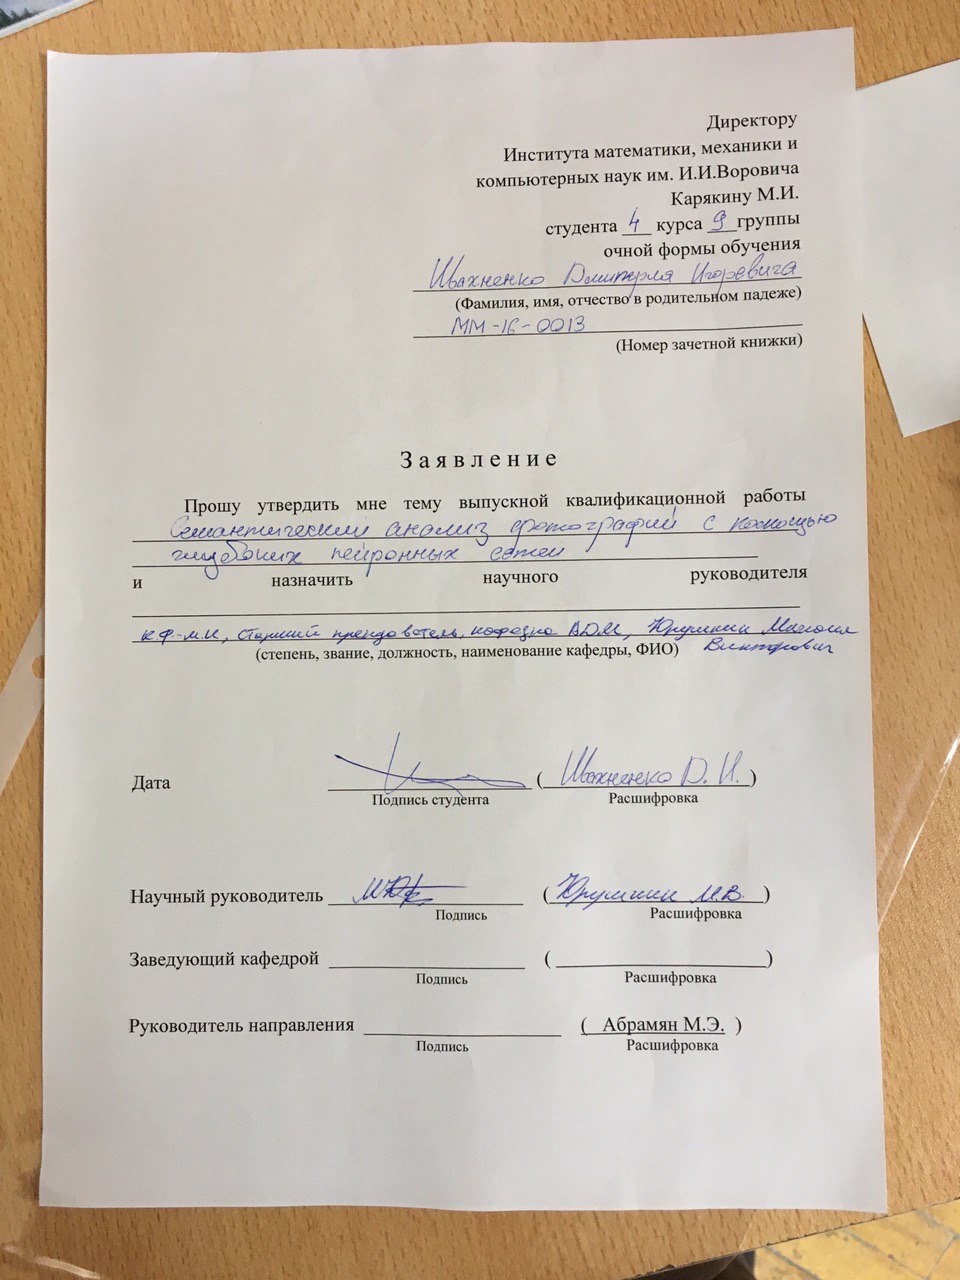 Директору
Института математики, механики и
компьютерных наук им. И.И.Воровича
Карякину М.И.
студента 4 курса 9 группы
очной формы обучения
Ивахненко Дмитрия Игоревича
(Фамилия, имя, отчество в родительном падеже)
ММ-16-0013
(Номер зачетной книжки)
Заявление
Прошу утвердить мне тему выпускной квалификационной работы
Семантический анализ фотографий с помощью
глубоких нейронных сетей
и назначить научного руководителя
к.ф.-м.н, старший преподователь, кафедра АДМ, Юрушкин Михаил
(степень, звание, должность, наименование кафедры, ФИО) Викторович
Дата ( Ивахненко Д. И. )
Подпись студента Расшифровка
Научный руководитель ( Юрушкин М.В. )
Подпись Расшифровка
Заведующий кафедрой ( )
Подпись Расшифровка
Руководитель направления ( Абрамян М.Э. )
Подпись Расшифровка